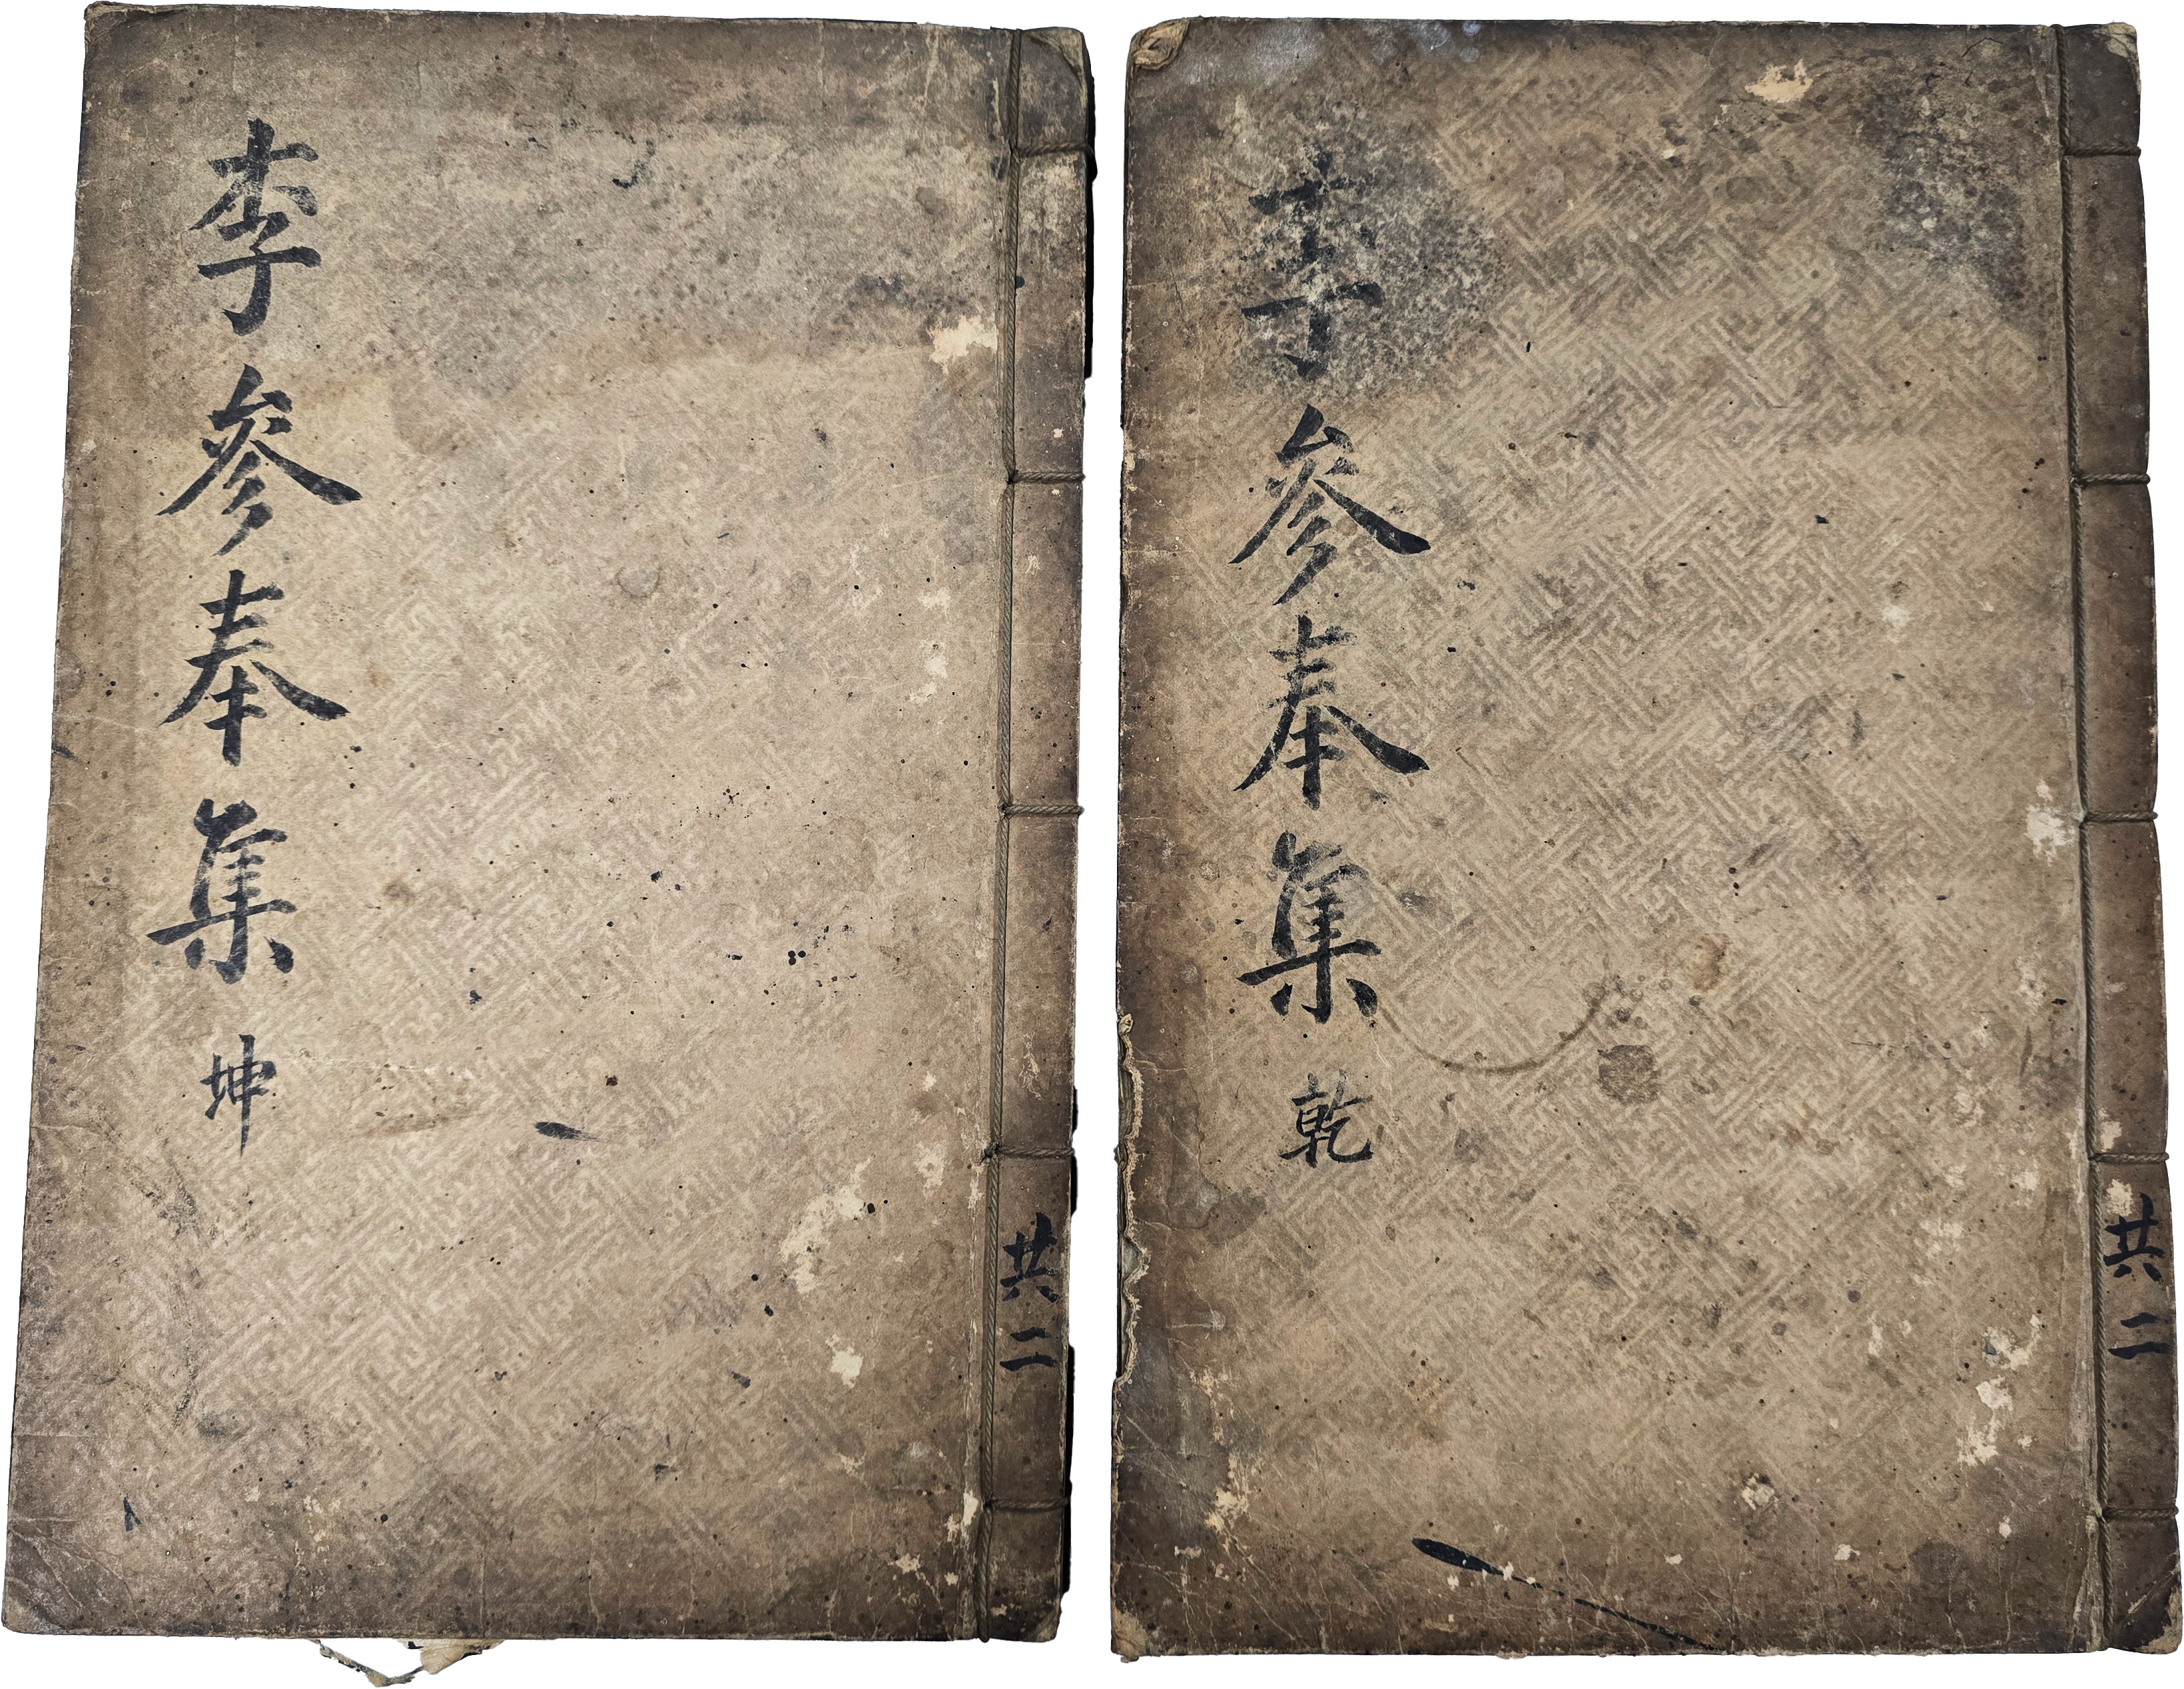 李參奉集 乾
共二
李參奉集 坤
共二